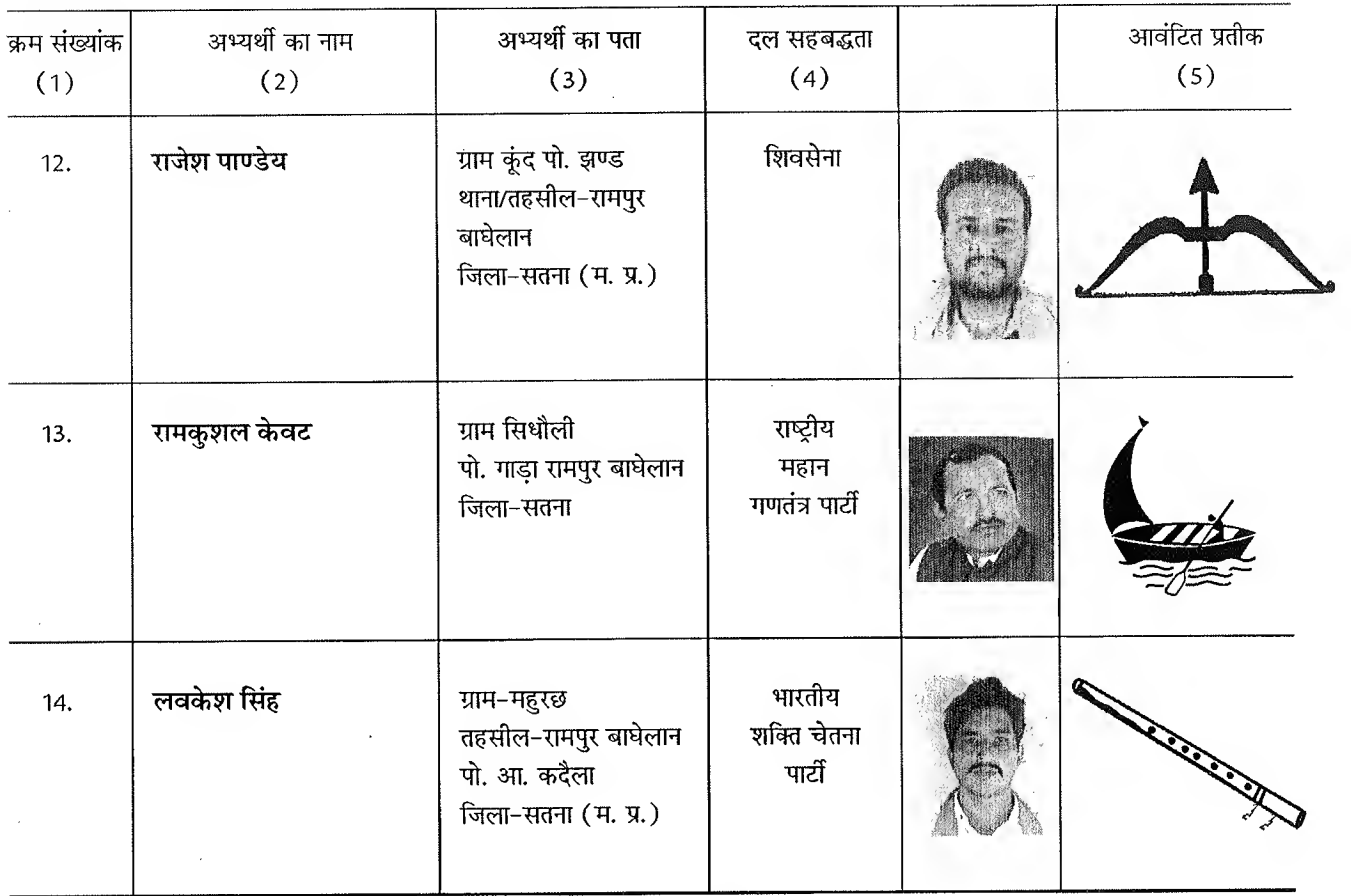 क्रम संख्यांक
(1)
अभ्यर्थी का नाम
(2)
अभ्यर्थी का पता
(3)
दल सहबद्धता
(4)
आवंटित प्रतीक
(5)
12.
राजेश पाण्डेय
ग्राम कूंद पो. झण्ड
थाना/तहसील-रामपुर
बाघेलान
जिला-सतना (म. प्र.)
शिवसेना
13.
रामकुशल केवट
ग्राम सिधौली
पो. गाड़ा रामपुर बाघेलान
जिला-सतना
राष्ट्रीय
महान
गणतंत्र पार्टी
14.
लवकेश सिंह
ग्राम-महुरछ
तहसील-रामपुर बाघेलान
पो. आ. कदैला
जिला-सतना (म. प्र.)
भारतीय
शक्ति चेतना
पार्टी